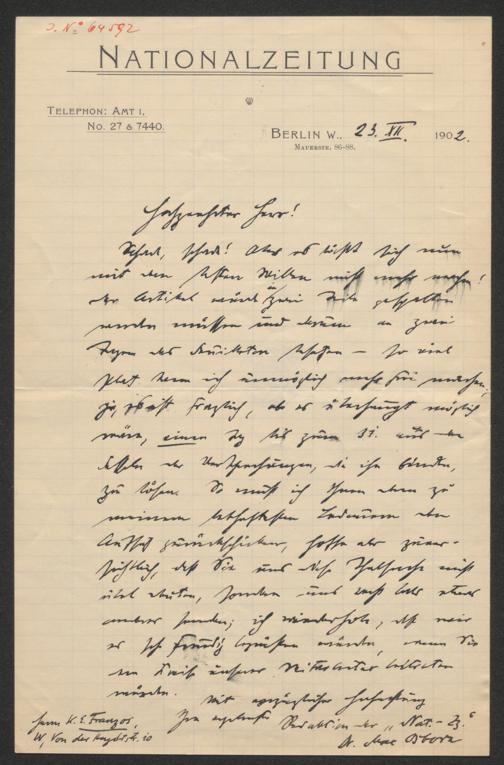 J. No 64592
NATIONALZEITUNG
TELEPHON: AMT I,
No. 27 & 7440.
BERLIN W., 23. XII. 1902.
MAUERSTR. 86-88.
Hochgeehrter Herr!
Schade, schade! Aber es läßt sich nun
mit dem besten Willen nicht mehr machen!
der Artikel würde in zwei Teile gespalten
werden müssen und darum an zwei
Tagen das Feuilleton besetzen – so viel
Platz kann ich unmöglich mehr frei machen,
ja, fraglich, ob es überhaupt möglich
wäre, einen Tag bis zum 31. aus den
der Versprechungen, die ihn binden,
zu lösen. So muß ich Ihnen eben zu
meinem lebhaftesten Bedauern den
Aufsatz zurückschicken, hoffe aber zuver-
sichtlich, daß Sie uns diese Thatsache nicht
übel deuten, sondern uns recht bald etwas
anderes senden; ich wiederhole, daß wir
es sehr freudig begrüßen würden, wenn Sie
in den Kreis unserer Mitarbeiter
würden.
Mit vorzüglicher Hochachtung
Ihr ergebenster Redaktion der „Nat.-Ztg."
Dr. Max Osborn
Herrn K. E. Franzos,
W, Von der Heydtstr. 10